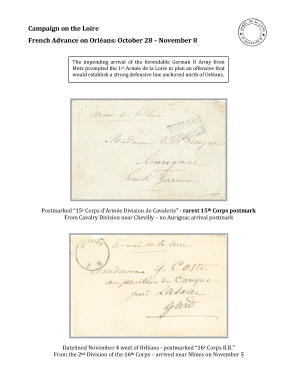 Campaign on the Loire
French Advance on Orléans: October 28 – November 8
The impending arrival of the formidable German II Army from
Metz prompted the 1st Armée de la Loire to plan an offensive that
would establish a strong defensive line anchored north of Orléans.
Armée de la Loire
Madame de
Aurignac
Haute Garonne
Postmarked "15e Corps d'Armée Division de Cavalerie" - rarest 15th Corps postmark
From Cavalry Division near Chevilly – no Aurignac arrival postmark
Armée de la Loire
Madame G. Coste
au
près Lasalle
Gard
Datelined November 4 west of Orléans - postmarked "16e Corps B.B."
From the 2nd Division of the 16th Corps – arrived near Nîmes on November 5